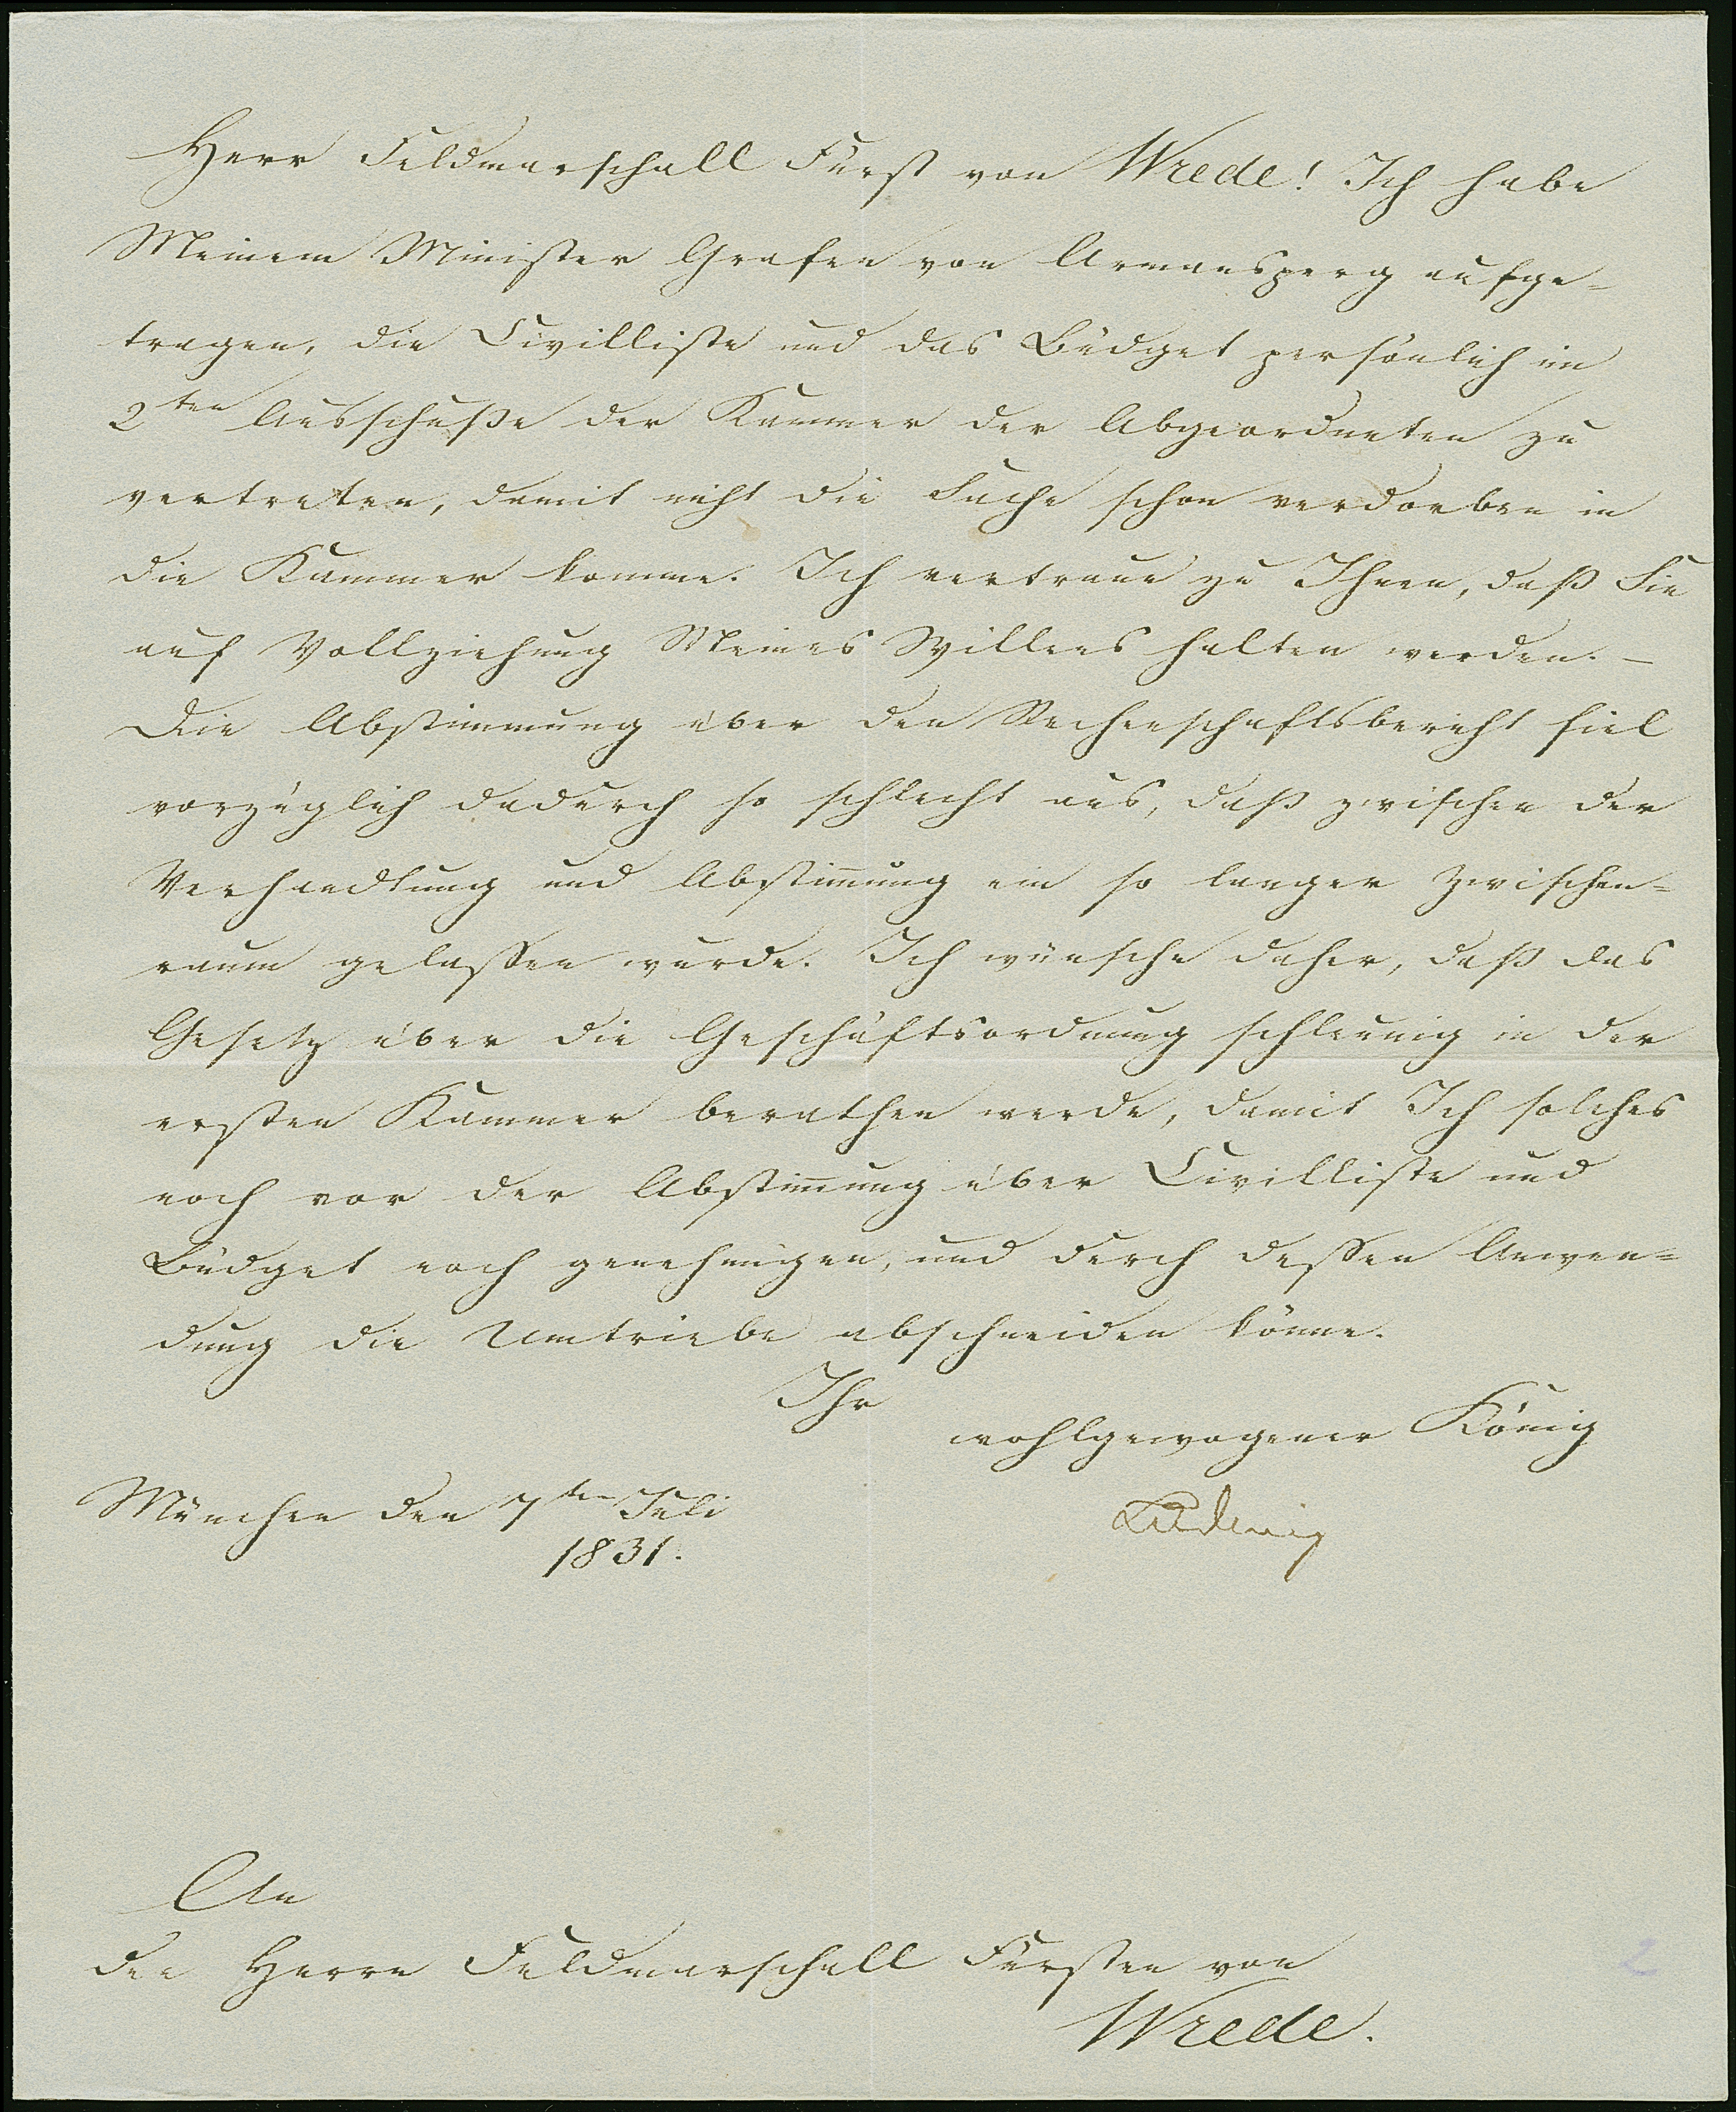 Herr Feldmarschall Fürst von Wrede! Ich habe
Meinem Minister Grafen von Armansperg aufge=
tragen, die Civilliste und das Büdget persönlich im
2ten Ausschuße der Kammer der Abgeordneten zu
vertreten, damit nicht die Sache schon verdorben in
die Kammer komme. Ich vertraue zu Ihnen, daß Sie
auf Vollziehung Meines Willens halten werden. –
Die Abstimmung über den Rechenschaftsbericht fiel
vorzüglich dadurch so schlecht aus, daß zwischen der
Verhandlung und Abstim̅ung ein so langer Zwischen=
raum gelassen wurde. Ich wünsche daher, daß das
Gesetz über die Geschäftsordnung schleunig in der
ersten Kammer berathen werde, damit Ich solches
noch vor der Abstim̅ung über Civilliste und
Büdget noch genehmigen, und durch dessen Anwen=
dung die Umtriebe abschneiden könne.
Ihr
wohlgewogener König
Ludwig
München den 7ten Juli
1831.
An
den Herrn Feldmarschall Fürsten von
Wrede.
2